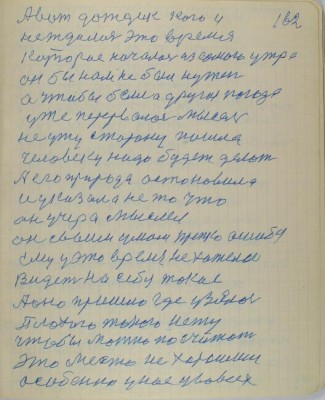 162
А вот дождик кого и
не ждался это время
которое началося из самого утра
он бы нам не был нужен
а чтобы была другая погода
уже перервалося мысль
не у ту сторону пошла
человеку надо будет делат
А его природа остоновила
и указала не то что
он учера мыслел
он своим умом ошибу
ему у это время не хотело
видет на себу токае
А оно пришло где узялос
плохого такого нету
чтобы можно посчитат
это место не хорошим
особенно у нас у всех